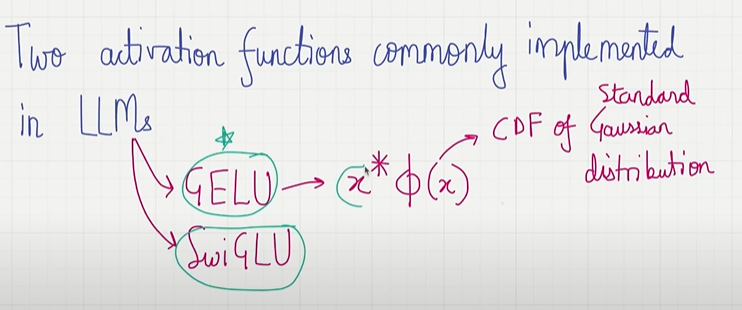 Two activation functions commonly implemented
in LLMs
GELU → x * ϕ(x) → CDF of Standard Gaussian distribution
SwiGLU